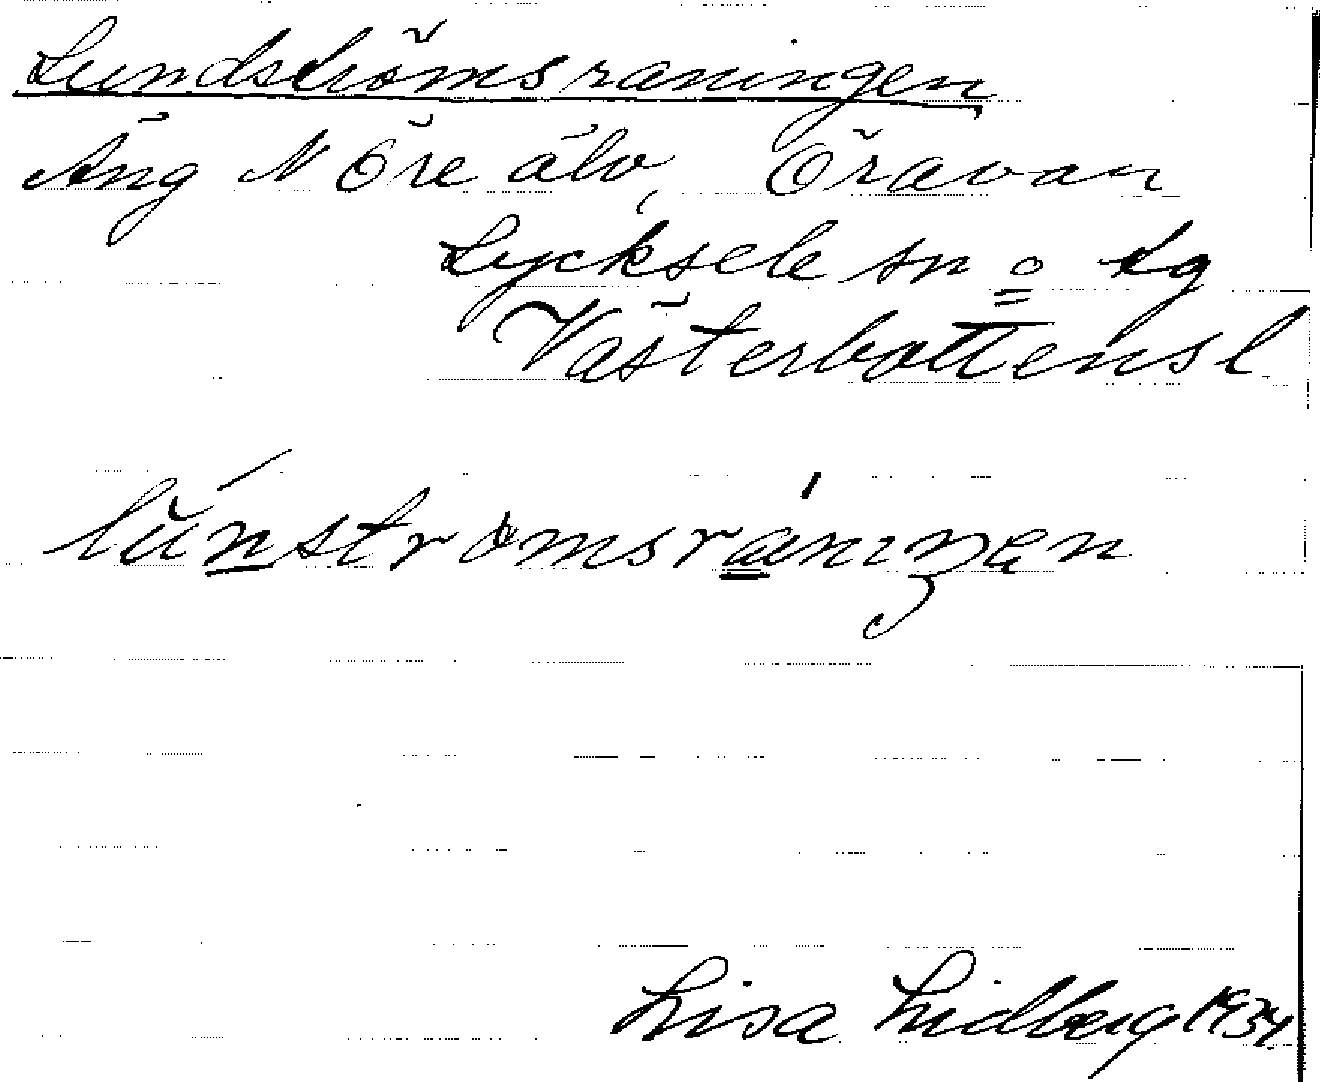 Lundströmsraningen
Äng N Öre älv, Öravan
Lycksele sn o lg
Västerbottensl
lúnstromsrànıŋen
Lisa Lidberg 1934